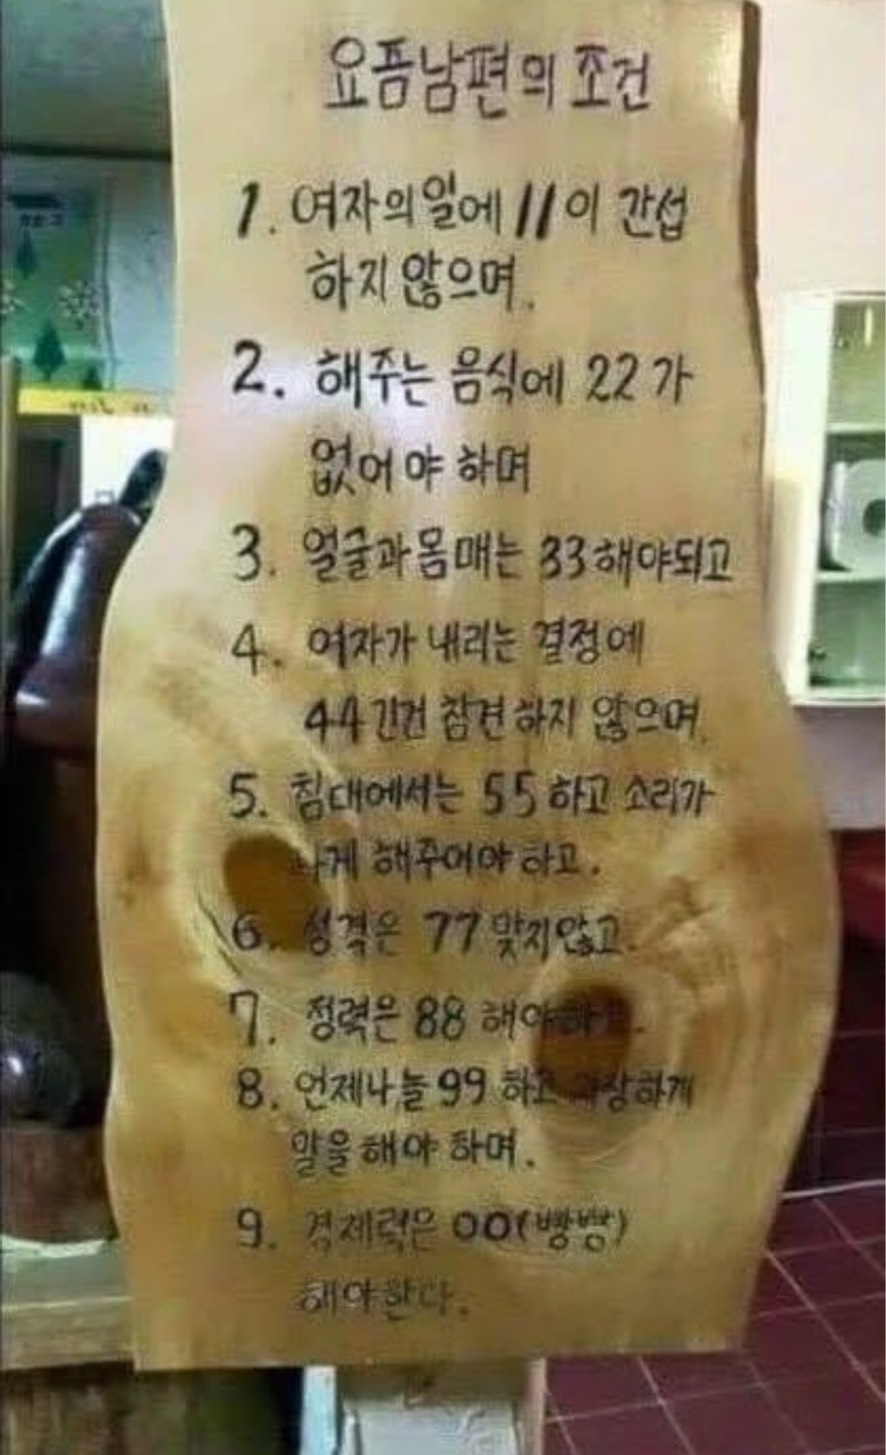 요픔남편의 조건
1. 여자의일에 11이 간섭
하지 않으며.
2. 해주는 음식에 22가
없어야 하며
3. 얼굴과몸매는 33해야되고
4. 여자가 내리는 결정에
44건건 참견하지 않으며.
5. 침대에서는 55하고 소리가
나게 해주어야 하고.
6. 성격은 77맞지않고.
7. 정력은 88 해야하고.
8. 언제나늘99 하고 자상하게
말을해야 하며.
9. 경제력은 00(빵빵)
해야한다.